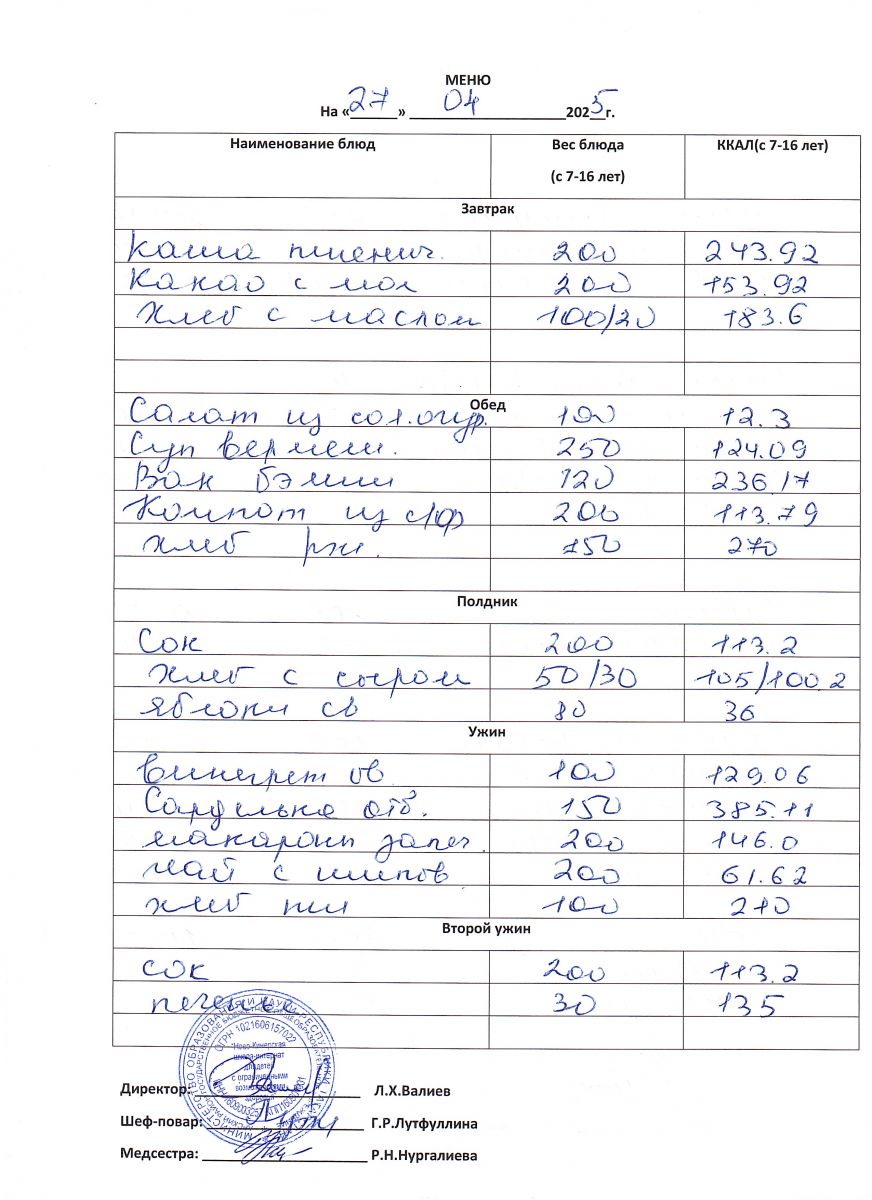 МЕНЮ
На «27» 04 2025г.
Наименование блюд Вес блюда (с 7-16 лет) ККАЛ(с 7-16 лет)
Завтрак
Каша пшенич. 200 243.92
Какао с мол 200 153.92
Хлеб с маслом 100/20 183.6
Обед
Салат из сол.огур. 100 12.3
Суп вермеш. 250 124.09
Вак бэлиш 120 236.17
Компот из с/ф 200 113.79
хлеб рж. 150 270
Полдник
Сок 200 113.2
Хлеб с сыром 50/30 105/100.2
яблоки св 80 36
Ужин
Винегрет ов 100 129.06
Сарделька отв. 150 385.11
макароны запеч. 200 146.0
чай с шипов 200 61.62
хлеб пш 100 210
Второй ужин
сок 200 113.2
печенье 30 135
ОГРН 1021606157022
"Ново-Кинерская
школа-интернат
для детей
с ограниченными
возможностями
здоровья"
Директор: Л.Х.Валиев
Шеф-повар: Г.Р.Лутфуллина
Медсестра: Р.Н.Нургалиева